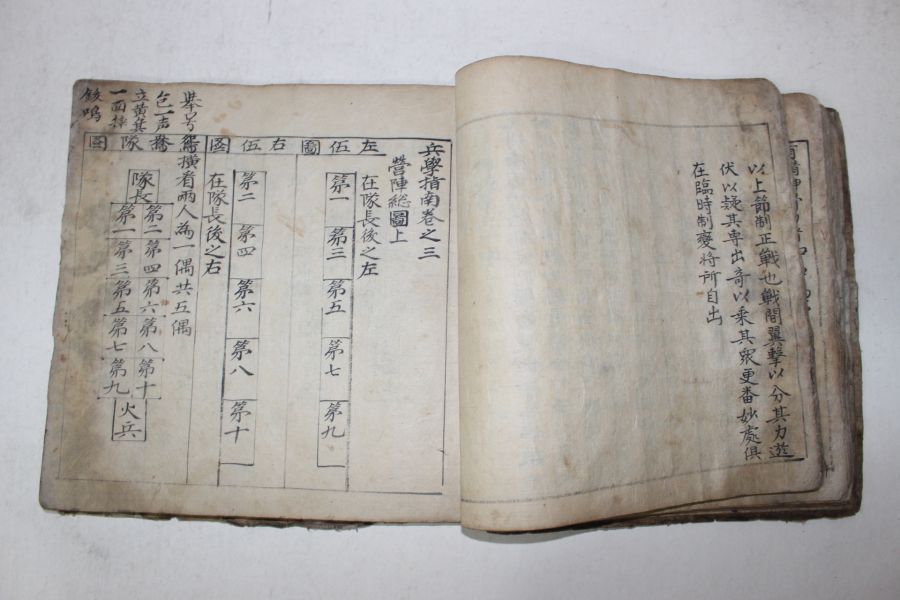 以上節制正戦也戦間翼擊以分其力遊
伏以疑其専出奇以乘其衆更番妙處俱
在臨時制變将所自出
兵學指南卷之三
營陣総圖上
圖伍左
在隊長後之左
第一
第三
第五
第七
第九
圖伍右
第二
第四
第六
第八
第十
在隊長後之右
横看兩人為一偶共五偶
圖隊鴦鴛
隊長
第二第四第六第八第十
第一第三第五第七第九
火兵
举号
一声
立黄
一面
鳴